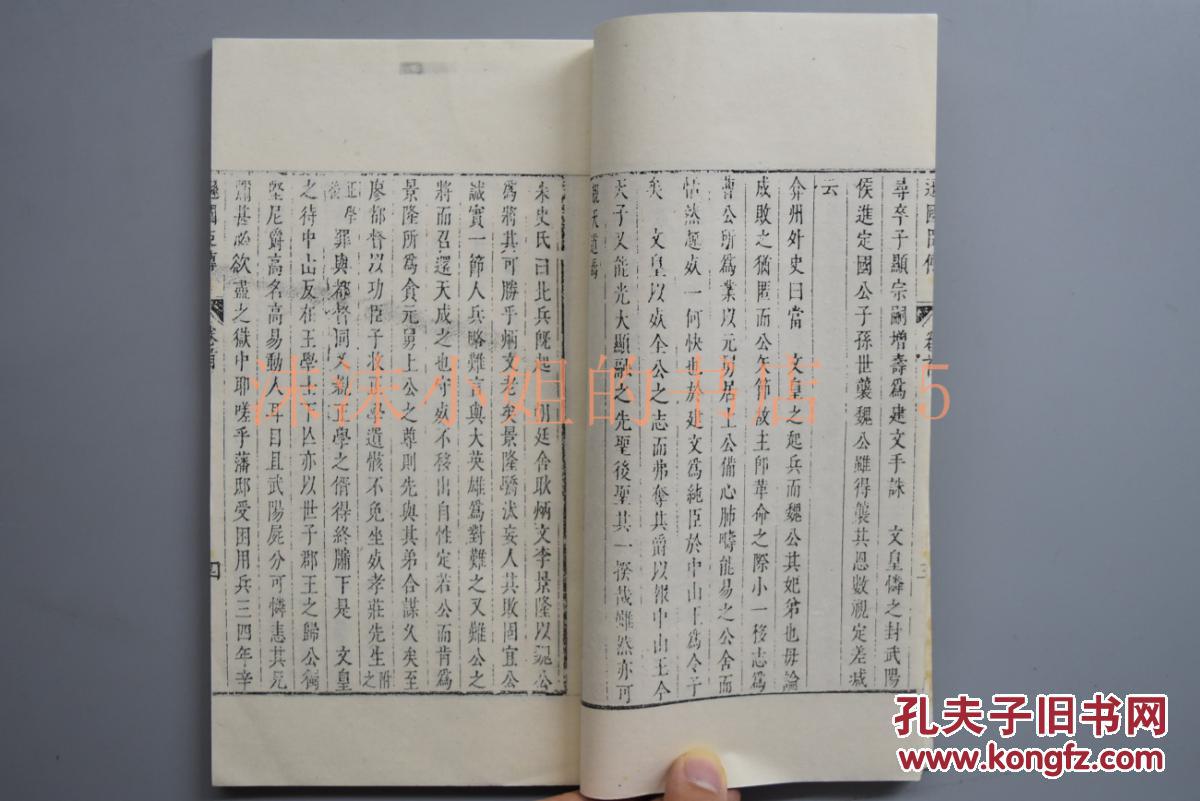 遜國臣傳
卷首
三
尋卒子顯宗嗣增壽爲建文手誅 文皇憐之封武陽
侯進定國公子孫世襲魏公雖得襲其恩數視定差減
云
弇州外史曰當 文皇之起兵而魏公其妃弟也毋論
成敗之猶匿而公矢節故主師革命之際小一移志爲
曹公所爲業以元舅居上公備心肺疇能易之公舍而
恬然趣 一何快也於建文爲純臣於中山王爲令子
矣 文皇以 全公之志而弗奪其爵以報中山王今
天子又能光大顯融之先聖後聖其一揆哉雖然亦可
觀天道焉
朱史氏曰北兵旣起 朝廷舍耿炳文李景隆以魏公
爲將其可勝乎炳文老矣景隆 妄人其敗固宜公
誠實一節人兵略難言與大英雄爲對難之又難公之
將而召還天成之也守 不移出自性定若公而肯爲
景隆所爲貪元舅上公之尊則先與其弟合謀久矣至
廖都督以功臣子收正學遺骸不免坐 孝莊先生附之
正學 罪與都督同又 正學之 得終牖下是 文皇
之待中山反在王學士下 亦以世子郡王之歸公稱
堅尼爵高名高易動人耳目且武陽屍分可憐恚其兄
甚必欲盡之獄中耶嗟乎藩邸受困用兵三四年辛
遜國臣傳
卷首
四
沫沫小姐的书店 5
孔夫子旧书网
www.kongfz.com